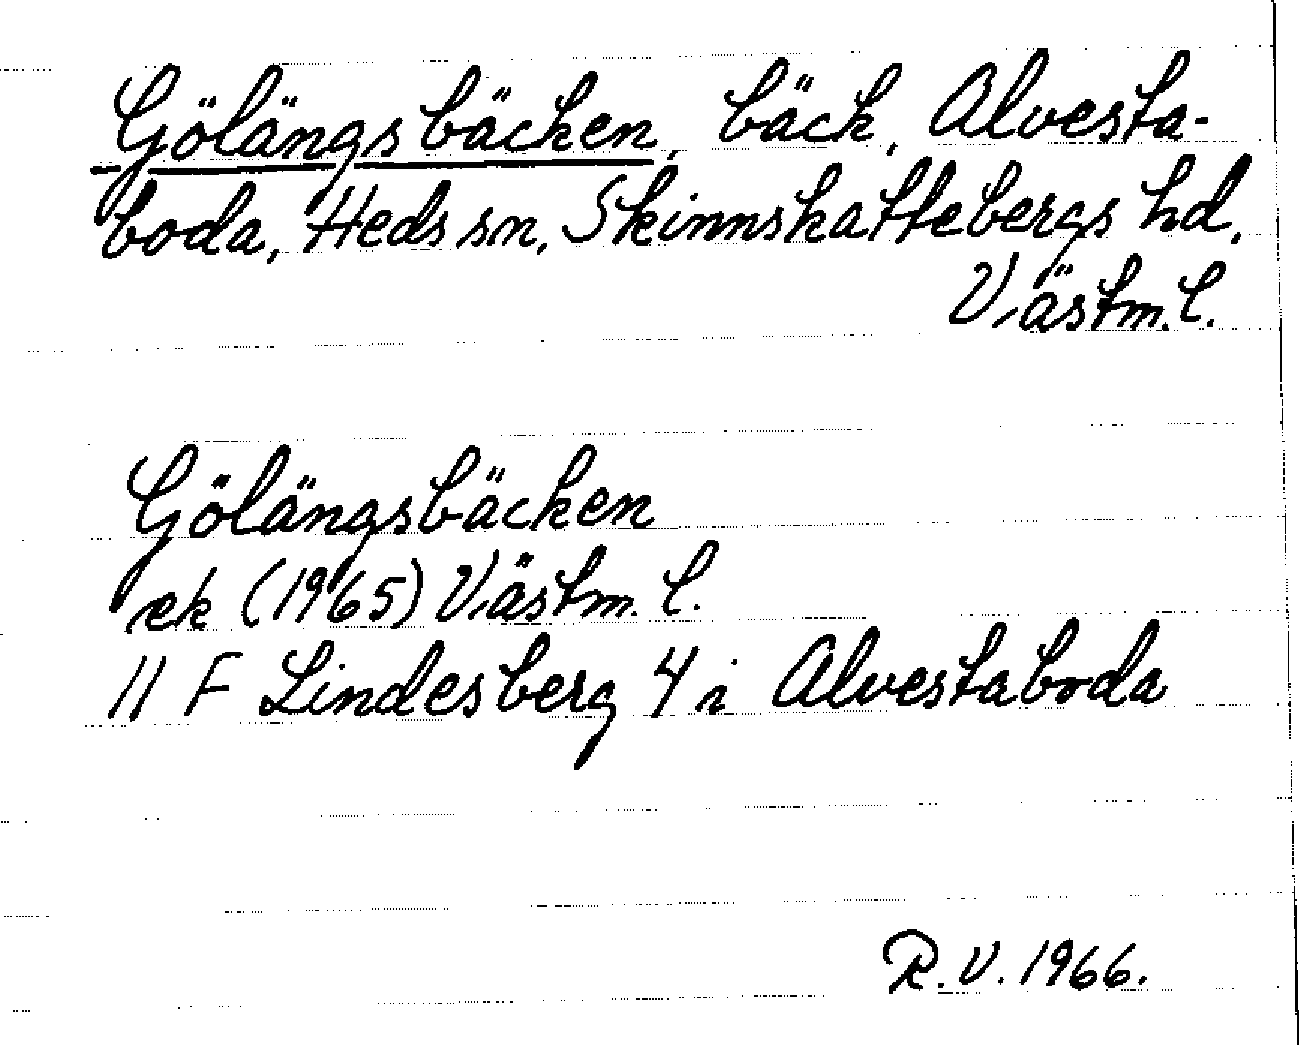 Gölängsbäcken, bäck, Alvesta-
boda, Heds sn, Skinnskattebergs hd,
Västm. l.
Gölängsbäcken
ek (1965) Västm. l.
11 F Lindesberg 4 i Alvestaboda
R.V. 1966.